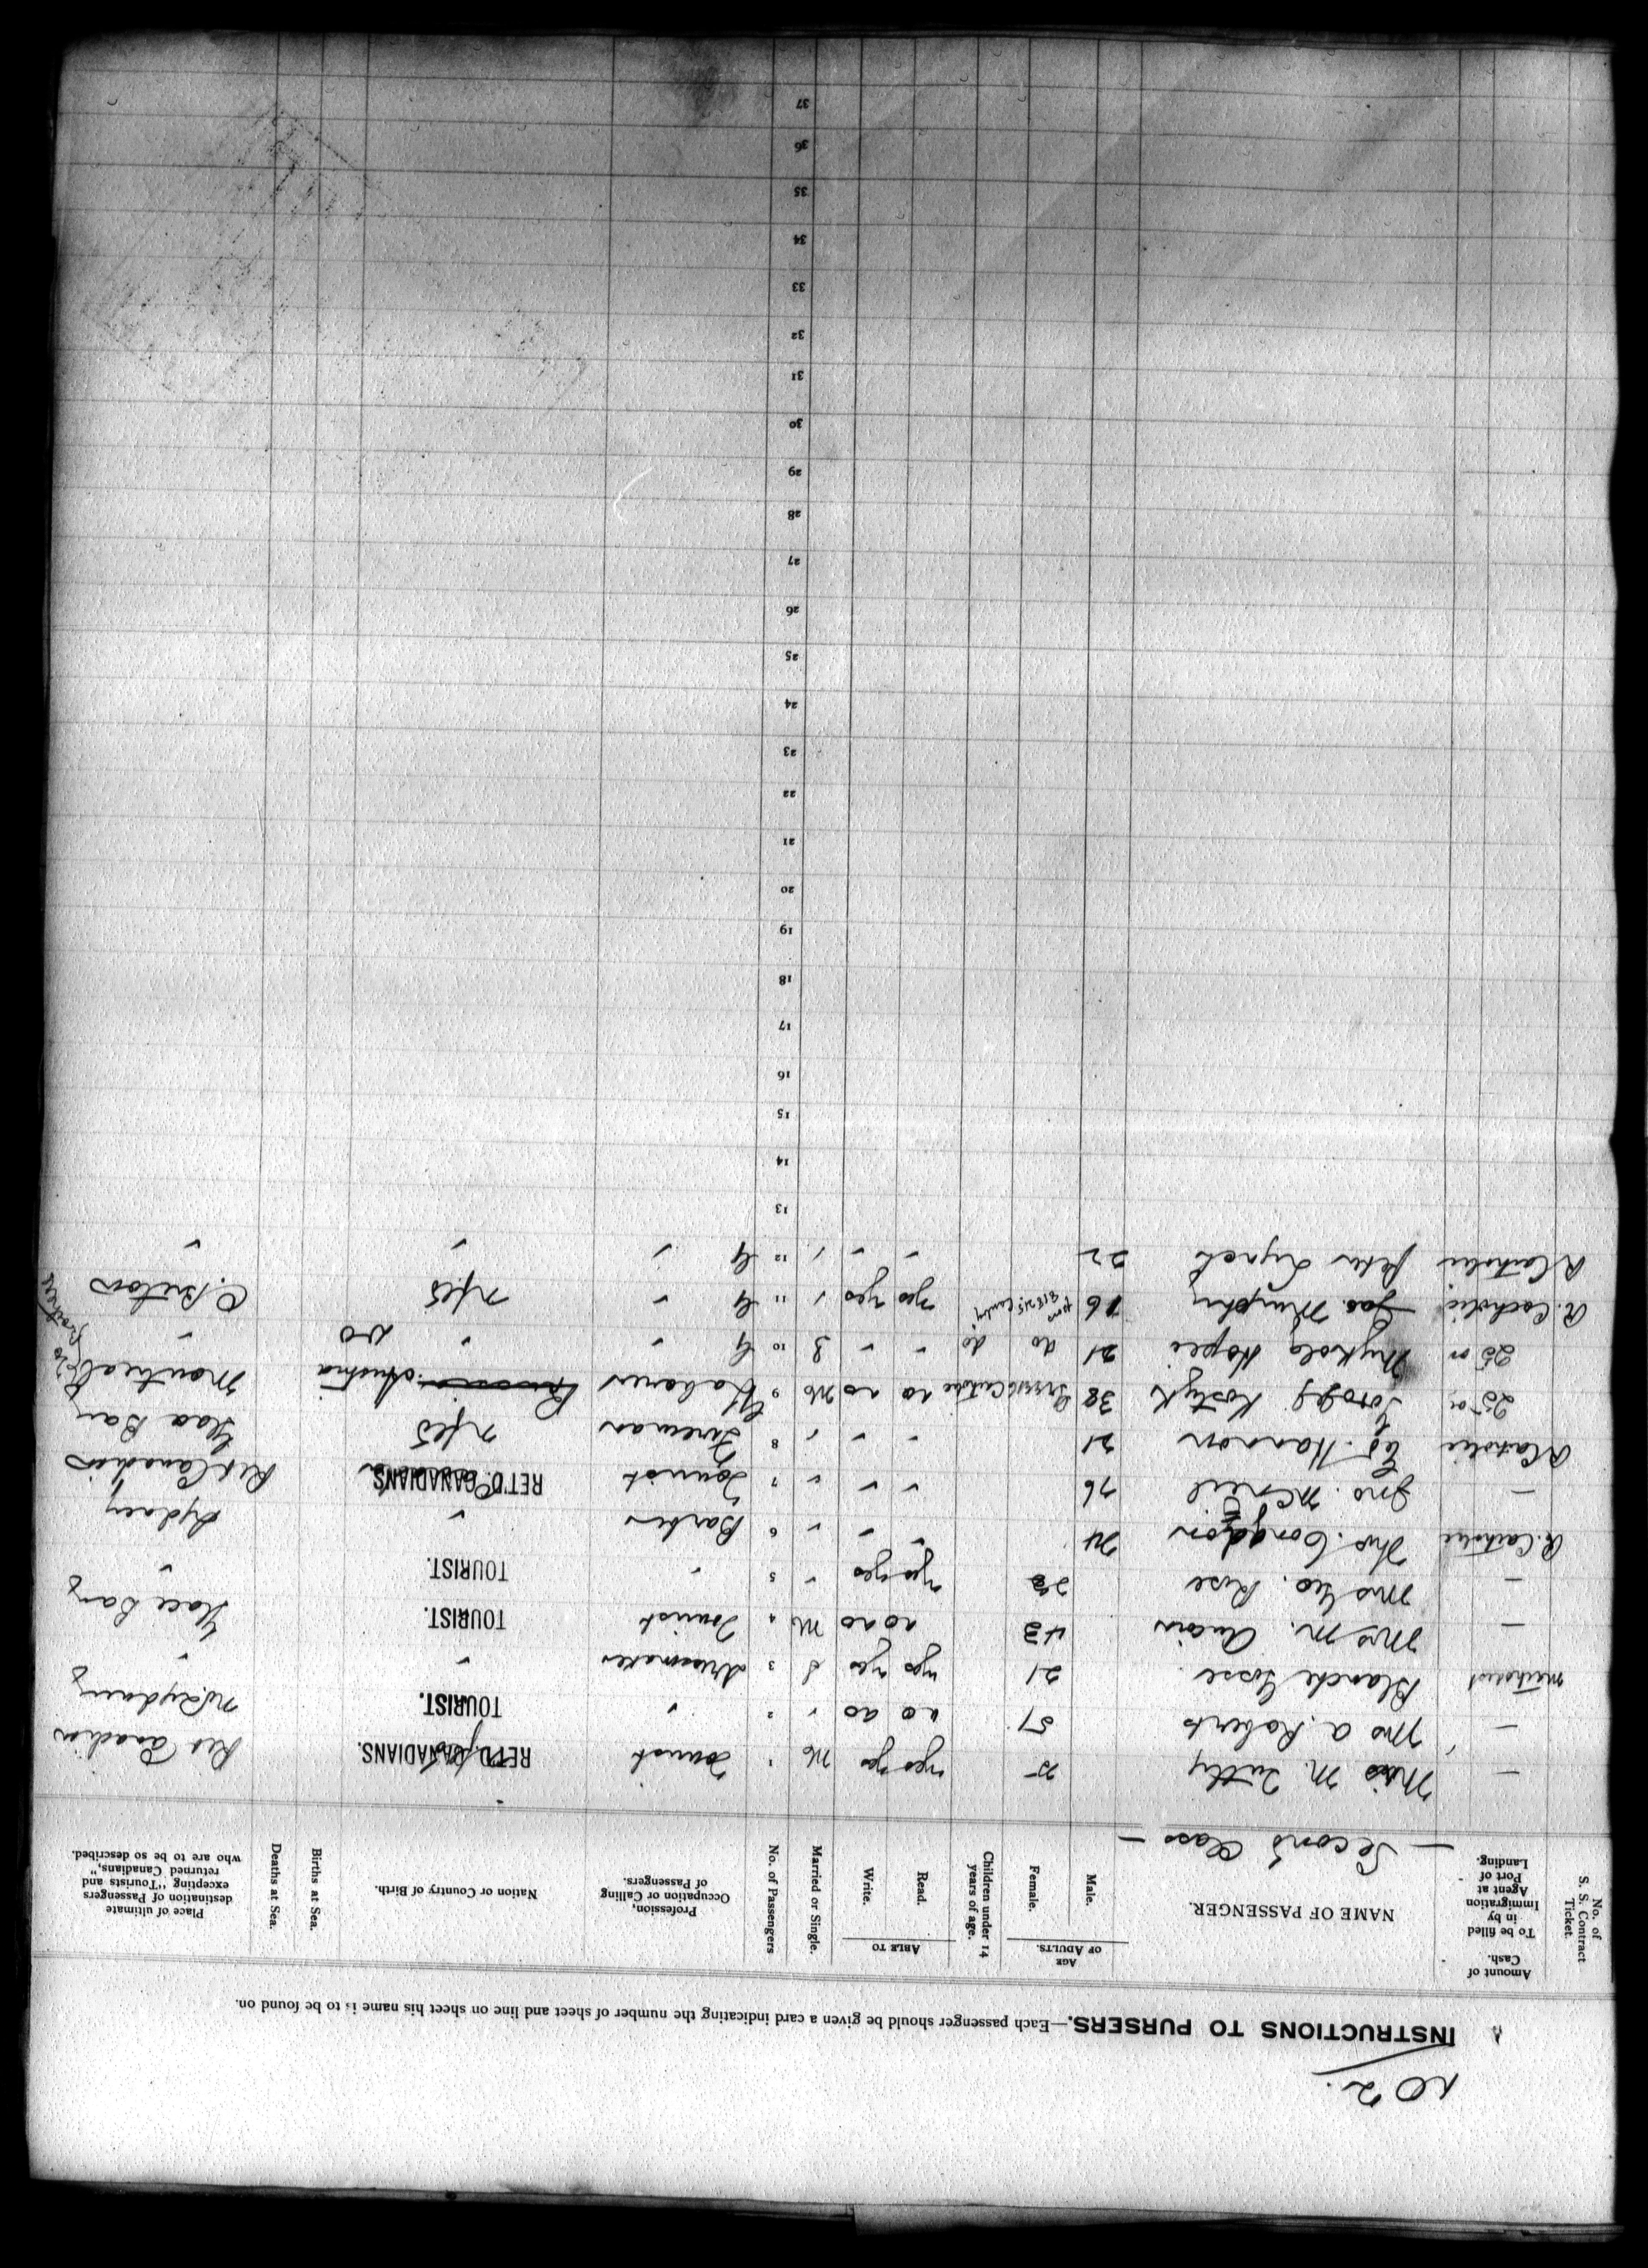 No 2.
INSTRUCTIONS TO PURSERS.—Each passenger should be given a card indicating the number of sheet and line on sheet his name is to be found on.
No. of S. S. Contract Ticket
Amount of Cash.
To be filled in by Immigration Agent at Port of Landing.
NAME OF PASSENGER.
AGE OF ADULTS.
Male.
Female.
Children under 14 years of age.
ABLE TO
Read.
Write.
Married or Single.
No. of Passengers
Profession, Occupation or Calling of Passengers.
Nation or Country of Birth.
Births at Sea.
Deaths at Sea.
Place of ultimate destination of Passengers excepting "Tourists and returned Canadians," who are to be so described.
— Second Class —
— M. Tutty yes yes M 1 Tourist RET'D. CANADIANS. Ret Canadian
— Mrs A. Roberts 51 no no " 2 " TOURIST. N. Sydney
Methodist Blanche Gosse 21 yes yes S 3 dressmaker " "
— Mrs M. 43 no no M 4 Tourist TOURIST. Glace Bay
— Mrs Geo. Rose yes yes " 5 " TOURIST. "
R. Catholic Thos. Congdon 24 " " " 6 Barber " Sydney
— Jno. McNeil 76 " " " 7 Tourist RET'D. CANADIANS Ret Canadian
R Catholic Ed. Hannon 21 " " " 8 Fireman Nfld Glace Bay
25 00 Kostyk 38 no no M 9 Labourer Austria Montreal
25 00 Mykola 21 do do " " S 10 " " "
R. Catholic Jas. Murphy 16 yes yes " 11 " Nfld C. Breton
R Catholic Peter Lynch 22 " " " 12 " " "
13
14
15
16
17
18
19
20
21
22
23
24
25
26
27
28
29
30
31
32
33
34
35
36
37